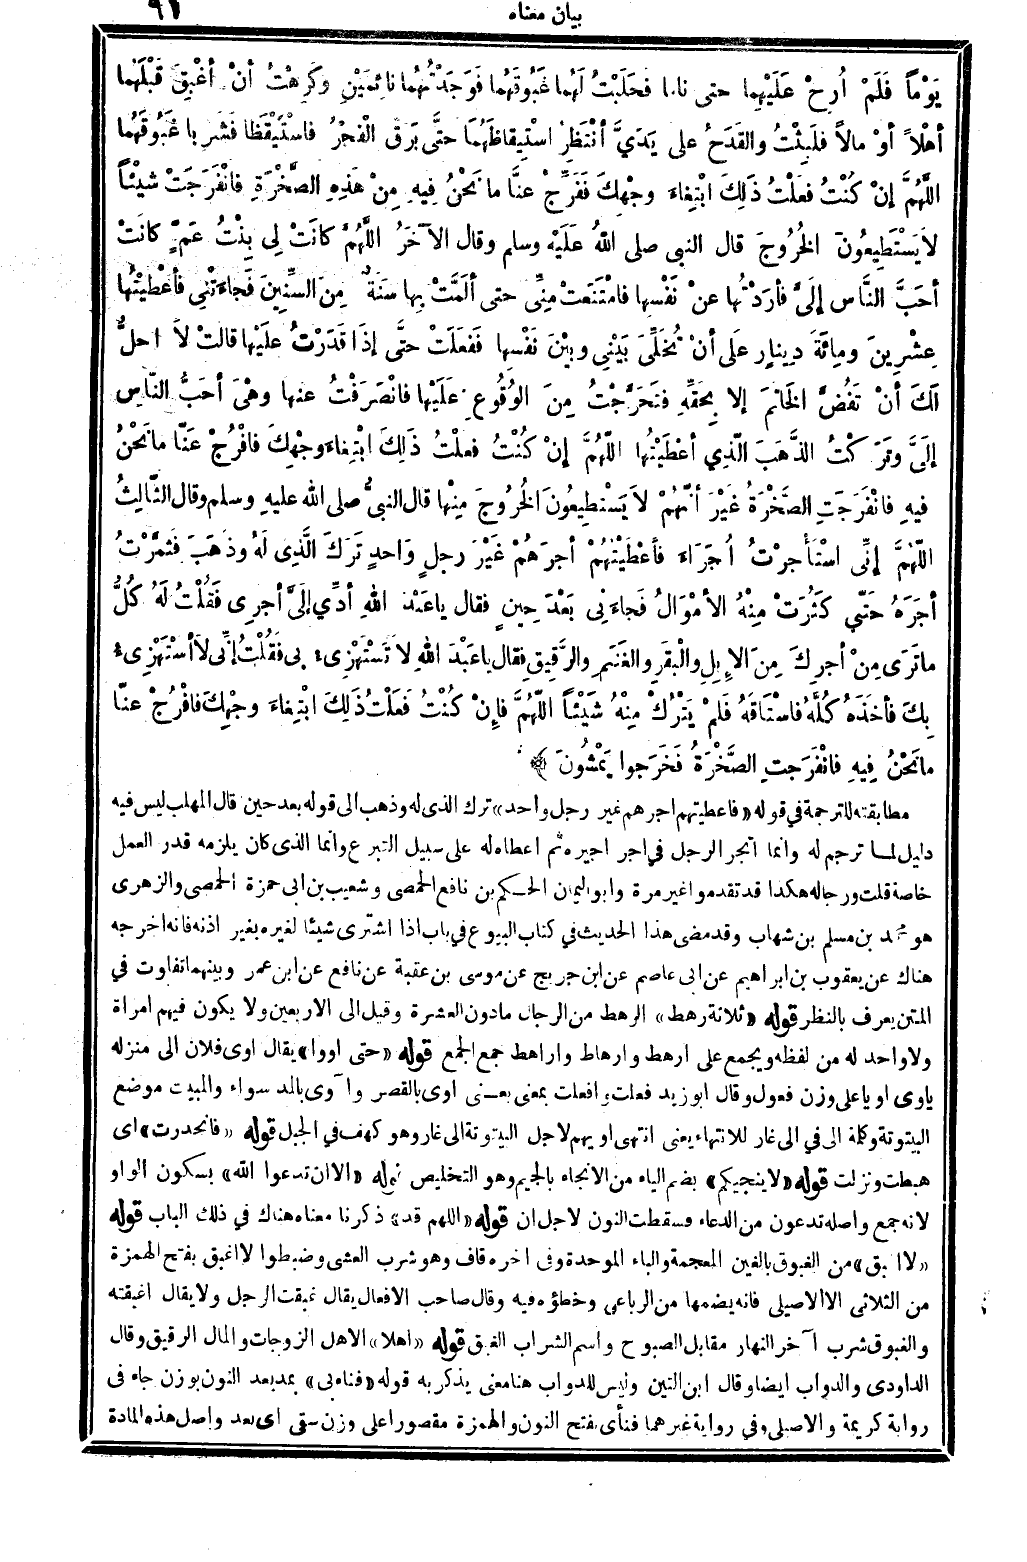 بيان معناه
٩١
يَوْماً فَلَمْ أُرِحْ عَلَيْهِما حتى ناما فَحَلَبْتُ لَهُما غَبُوقَهُما فَوَجَدْتُهُما نائِمَيْنِ وكَرِهْتُ أنْ أغْبِقَ قَبْلَهُما
أهْلاً أوْ مالاً فَلَبِثْتُ والقَدَحُ على يَدَيَّ أنْتَظِرُ اسْتِيقاظَهُمَا حتَّى بَرَقَ الْفَجْرُ فاسْتَيْقَظا فَشَرِبا غَبُوقَهُما
اللَّهُمَّ إنْ كُنْتُ فَعَلْتُ ذَلِكَ ابْتِغاءَ وجْهِكَ فَفَرِّجْ عنَّا ما نَحْنُ فيهِ مِنْ هَذِهِ الصَّخْرَةِ فانْفَرَجَتْ شيئاً
لاَ يَسْتَطِيعُونَ الخُرُوجَ قال النبى صلى اللهُ عَلَيْهِ وسلم وقال الآخَرُ اللَّهُمَّ كانَتْ لِي بِنْتُ عَمٍّ كانَتْ
أحَبَّ النَّاسِ إلَىَّ فأرَدْتُها عنْ نَفْسِها فامْتَنَعَتْ مِنِّى حتى ألَمَّتْ بِها سَنَةٌ مِنَ السِّنِينَ فَجاءَتْنِى فأعْطَيْتُها
عِشْرِينَ ومِائَةَ دِينارٍ علَى أنْ تُخَلِّىَ بَيْنِي وبيْنَ نَفْسِها فَفَعَلَتْ حتَّى إذَا قَدَرْتُ علَيْها قالَتْ لاَ احِلُّ
لَكَ أنْ تَفُضَّ الخَاتَمَ إلا بِحَقِّهِ فتَحَرَّجْتُ مِنَ الوُقُوعِ عَلَيْها فانْصَرَفْتُ عنها وهْىَ أحَبُّ النَّاسِ
إلَىَّ وتَرَكْتُ الذَّهَبَ الَّذِي أعْطَيْتُها اللَّهُمَّ إنْ كُنْتُ فعلْتُ ذَلِكَ ابْتِغاءَ وجْهِكَ فافْرُجْ عَنَّا ما نَحْنُ
فيهِ فانْفَرَجَتِ الصَّخْرَةُ غَيْرَ أنَّهُمْ لاَ يَسْتَطِيعُونَ الخُرُوجَ مِنْها قال النبىُّ صلى الله عليهِ وسلم وقال الثَّالِثُ
اللَّهُمَّ إنِّى اسْتَأجَرْتُ اُجَرَاءَ فأعْطَيْتُهُمْ أجرَهُمْ غَيْرَ رجلٍ وَاحدٍ تَرَكَ الَّذِى لَهُ وذَهَبَ فَثَمَّرْتُ
أجرَهُ حَتَّى كَثُرَتْ مِنْهُ الأمْوَالُ فَجاءَنِى بَعْدَ حِينٍ فقال ياعَبْدَ اللهِ أدِّي إلَىَّ أجرِى فَقُلْتُ لَهُ كُلُّ
ماتَرَى مِنْ أجرِكَ مِنَ الإبِلِ والْبَقَرِ والغَنَمِ والرَّقيقِ فقال ياعَبْدَ اللهِ لا تَسْتَهْزِىءْ بِى فَقُلْتُ إنِّى لاَ أسْتَهْزِىءُ
بِكَ فأخَذَهُ كُلَّهُ فاسْتَاقَهُ فَلَمْ يَتْرُكْ مِنْهُ شَيْئاً اللَّهُمَّ فإنْ كُنْتُ فَعَلْتُ ذَلِكَ ابْتِغاءَ وجْهِكَ فافْرُجْ عنَّا
مَا نَحْنُ فِيهِ فانْفَرَجتِ الصَّخْرَةُ فَخَرَجوا يَمْشُونَ ﴾
مطابقته للترجمة في قوله «فاعطيتهم اجرهم غير رجل واحد» ترك الذى له وذهب الى قوله بعد حين قال المهلب ليس فيه
دليل لما ترجم له وانما اتجر الرجل في اجر اجيره ثم اعطاه له على سبيل التبرع وانما الذى كان يلزمه قدر العمل
خاصة قلت ورجاله هكذا قد تقدموا غير مرة وابو اليمان الحكم بن نافع الحمصى وشعيب بن ابى حمزة الحمصى والزهرى
هو محمد بن مسلم بن شهاب وقد مضى هذا الحديث في كتاب البيوع في باب اذا اشترى شيئا لغيره بغير اذنه فانه اخرجه
هناك عن يعقوب بن ابراهيم عن ابى عاصم عن ابن جريج عن موسى بن عقبة عن نافع عن ابن عمر وبينهما تفاوت في
المتن يعرف بالنظر قوله «ثلاثة رهط» الرهط من الرجال مادون العشرة وقيل الى الاربعين ولا يكون فيهم امراة
ولا واحد له من لفظه ويجمع على ارهط وارهاط واراهط جمع الجمع قوله «حتى اووا» يقال اوى فلان الى منزله
ياوى اويا على وزن فعول وقال ابو زيد فعلت وافعلت بمعنى يعنى اوى بالقصر وآوى بالمد سواء والمبيت موضع
البيتوتة وكلمة الى في الى غار للانتهاء يعنى انتهى اويهم لاجل البيتوتة الى غار وهو كهف في الجبل قوله «فانحدرت» اى
هبطت ونزلت قوله «لا ينجيكم» بضم الياء من الانجاء بالجيم وهو التخليص قوله «الا ان تدعوا الله» بسكون الواو
لانه جمع واصله تدعون من الدعاء فسقطت النون لاجل ان قوله «اللهم قد» ذكرنا معناه هناك في ذلك الباب قوله
«لا اغبق» من الغبوق بالغين المعجمة والباء الموحدة وفى اخره قاف وهو شرب العشى وضبطوا لا اغبق بفتح الهمزة
من الثلاثى الا الاصيلى فانه يضمها من الرباعى وخطؤه فيه وقال صاحب الافعال يقال غبقت الرجل ولا يقال اغبقته
والغبوق شرب آخر النهار مقابل الصبوح واسم الشراب الغبق قوله «اهلا» الاهل الزوجات والمال الرقيق وقال
الداودى والدواب ايضا وقال ابن التين وليس للدواب هنا معنى يذكر به قوله «فناء بى» بمد بعد النون بوزن جاء فى
رواية كريمة والاصيلى وفي رواية غيرهما فنأى بفتح النون والهمزة مقصورا على وزن سقى اى بعد واصل هذه المادة